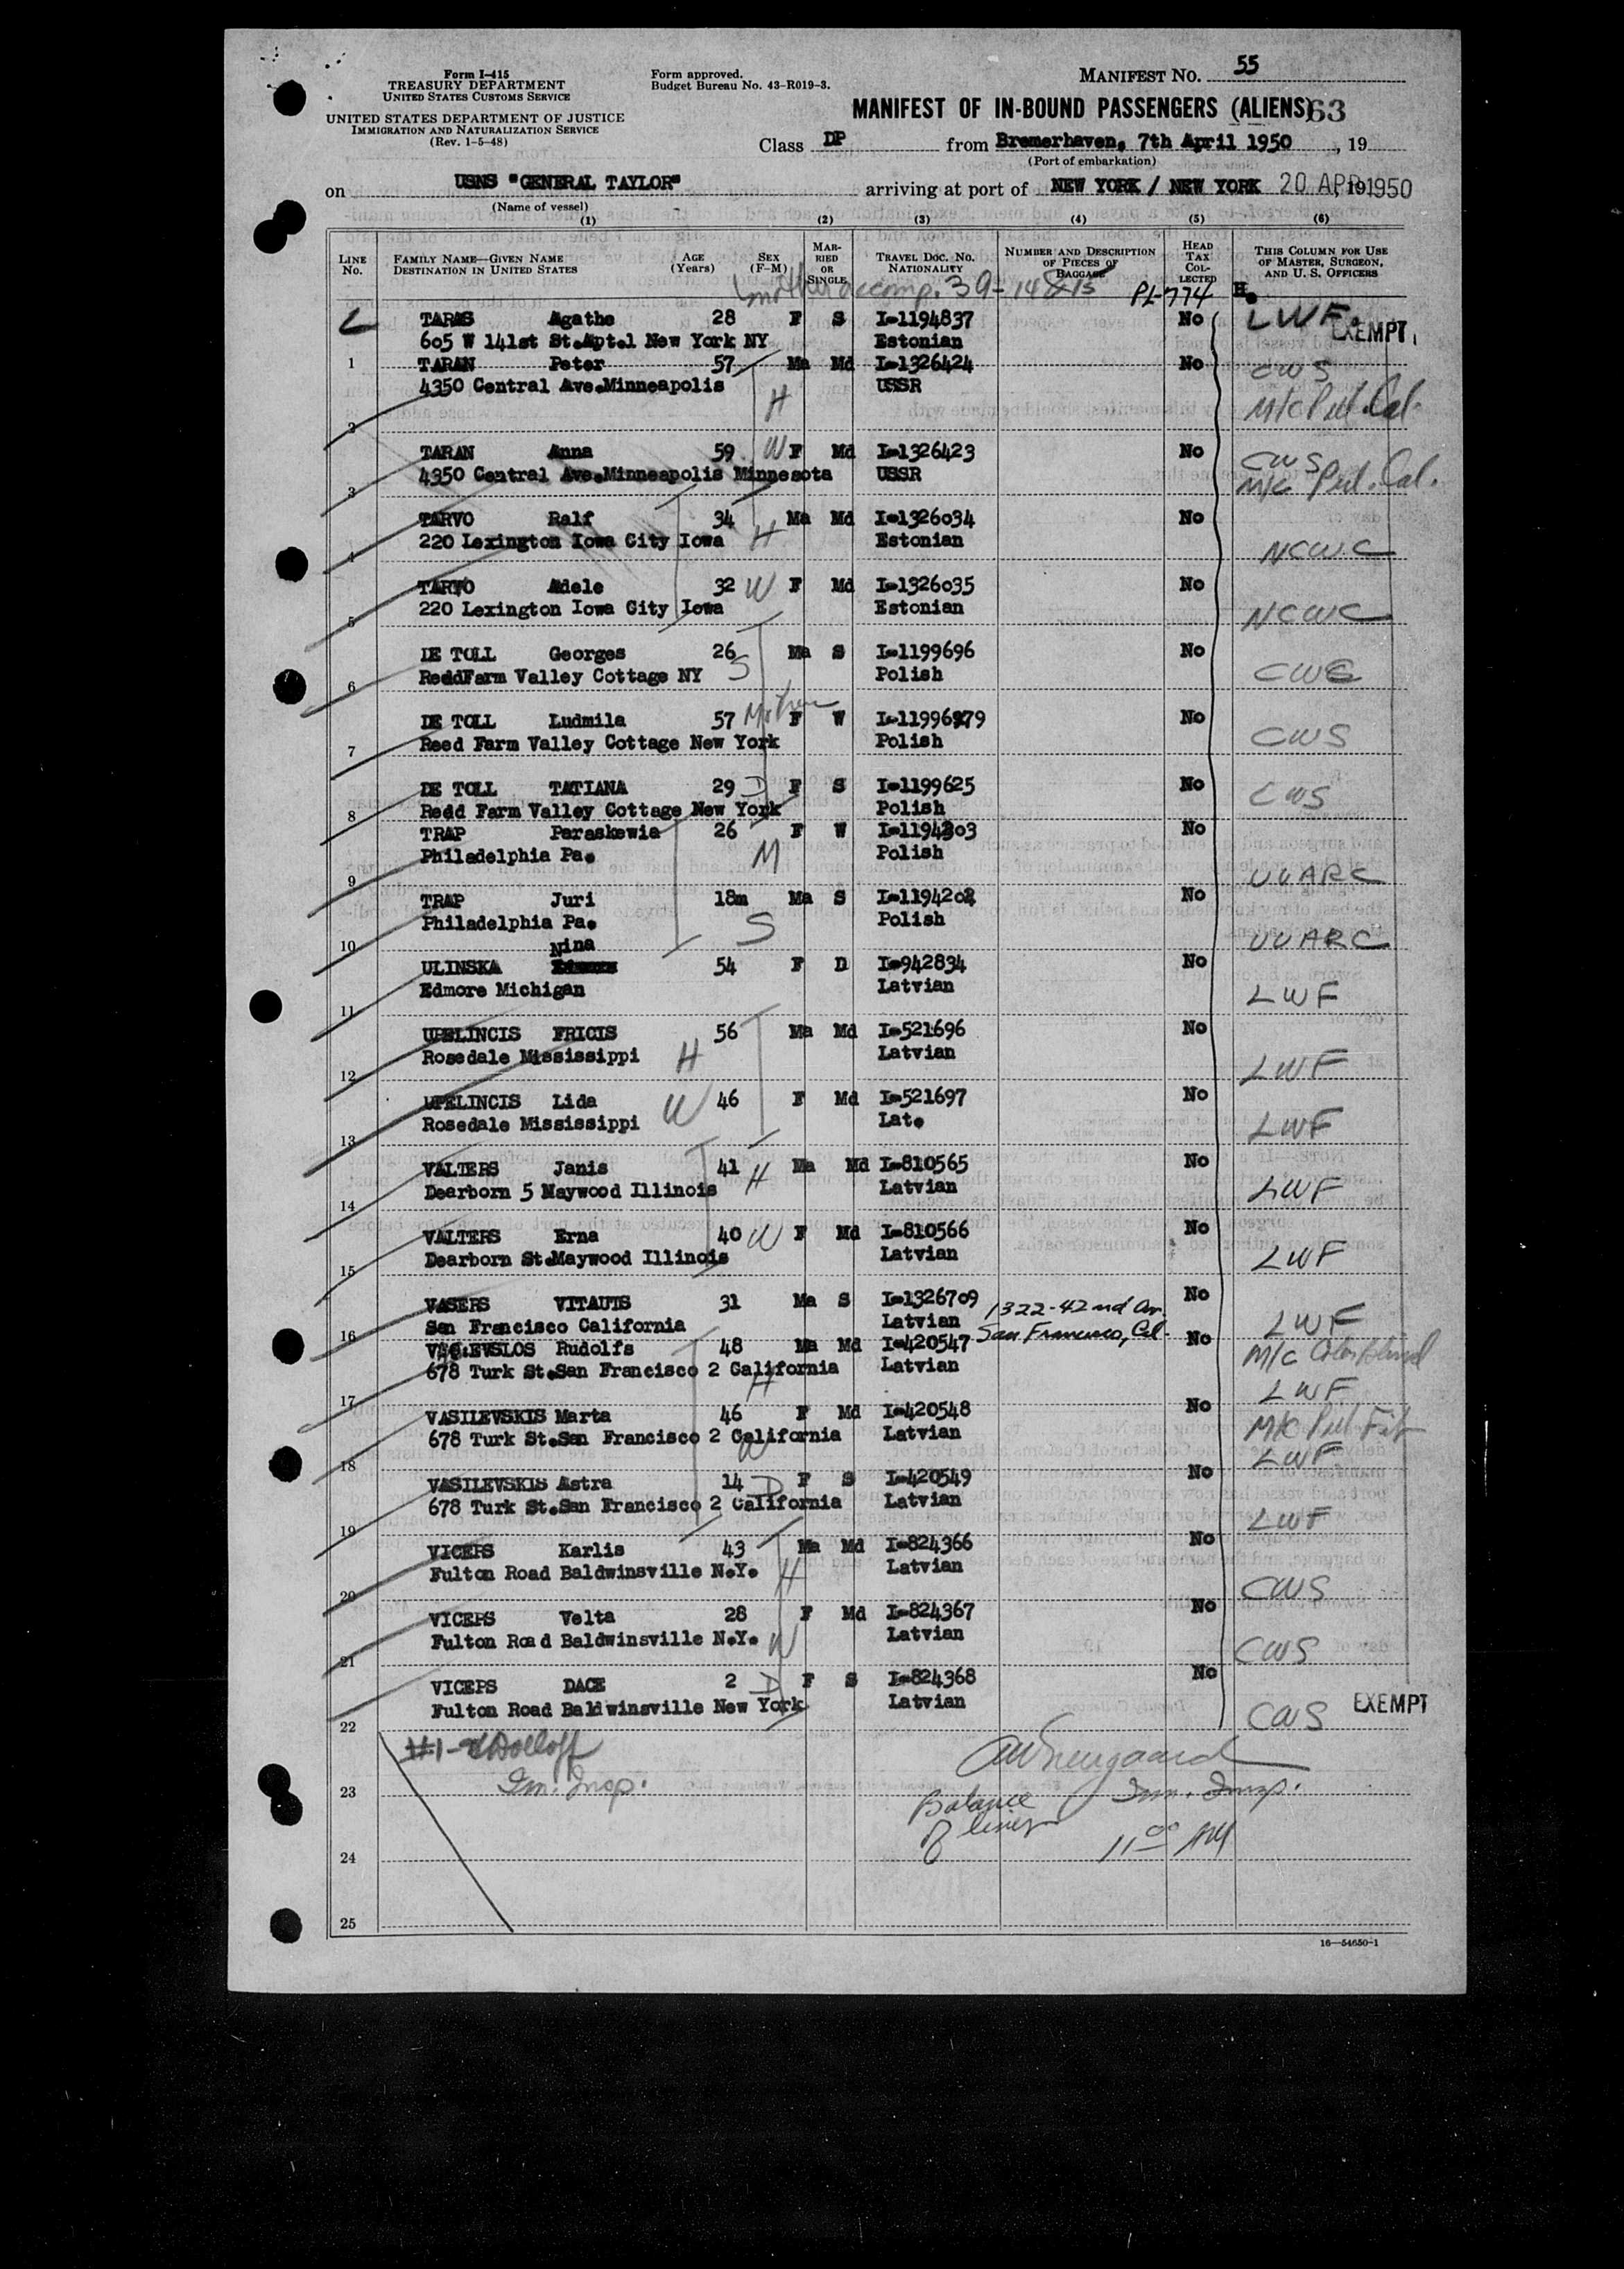 Form I-415
TREASURY DEPARTMENT
UNITED STATES CUSTOMS SERVICE
UNITED STATES DEPARTMENT OF JUSTICE
IMMIGRATION AND NATURALIZATION SERVICE
(Rev. 1-5-48)
Form approved.
Budget Bureau No. 43-R019-3.
MANIFEST NO. 55
MANIFEST OF IN-BOUND PASSENGERS (ALIENS) 63
Class DP from Bremerhaven, 7th April 1950, 19
(Port of embarkation)
on USNS "GENERAL TAYLOR" arriving at port of NEW YORK / NEW YORK 20 APR 1950, 19
(Name of vessel)
(1) (2) (3) (4) (5) (6)
LINE No. FAMILY NAME—GIVEN NAME DESTINATION IN UNITED STATES AGE (Years) SEX (F-M) MARRIED OR SINGLE TRAVEL DOC. NO. NATIONALITY NUMBER AND DESCRIPTION OF PIECES OF BAGGAGE HEAD TAX COLLECTED THIS COLUMN FOR USE OF MASTER, SURGEON, AND U. S. OFFICERS
mother accomp. 39-14&15 PL-774
TARAS Agathe 28 F S I-1194837 No LWF.
605 W 141st St.Apt.1 New York NY Estonian EXEMPT
1 TARAN Peter 57 Ma Md I-1326424 No CWS
4350 Central Ave.Minneapolis H USSR M/C Pul. Cal.
2
TARAN Anna 59 W F Md I-1326423 No CWS
4350 Central Ave.Minneapolis Minnesota USSR M/C Pul. Cal.
3
TARVO Ralf 34 Ma Md I-1326034 No
220 Lexington Iowa City Iowa H Estonian NCWC
4
TARVO Adele 32 W F Md I-1326035 No
220 Lexington Iowa City Iowa Estonian NCWC
5
DE TOLL Georges 26 S Ma S I-1199696 No
ReddFarm Valley Cottage NY Polish
6
DE TOLL Ludmila 57 Mother F W No
Reed Farm Valley Cottage New York Polish CWS
7
DE TOLL TATIANA 29 D F S I-1199625 No CWS
8 Redd Farm Valley Cottage New York Polish
TRAP Paraskewia 26 F W I-1194203 No
Philadelphia Pa. M Polish
9 UUARC
TRAP Juri 18m Ma S I-1194202 No
Philadelphia Pa. S Polish
10 Nina UUARC
ULINSKA 54 F D I-942834 No
Edmore Michigan Latvian LWF
11
UPELINCIS FRICIS 56 Ma Md I-521696 No
Rosedale Mississippi H Latvian
12 LWF
UPELINCIS Lida W 46 F Md I-521697 No
Rosedale Mississippi Lat.
13 LWF
VALTERS Janis 41 H Ma Md I-810565 No
Dearborn 5 Maywood Illinois Latvian LWF
14
VALTERS Erna 40 W F Md I-810566 No
Dearborn St.Maywood Illinois Latvian LWF
15
VASERS VITAUTS 31 Ma S I-1326709 1322-42nd Av. No
San Francisco California Latvian San Francisco, Cal. LWF
16 Rudolfs 48 Ma Md I-420547 No M/C Color blind
678 Turk St.San Francisco 2 California H Latvian
17 LWF
VASILEVSKIS Marta 46 F Md I-420548 No M/C Pul. Fib
678 Turk St.San Francisco 2 California W Latvian LWF
18
VASILEVSKIS Astra 14 D F S I-420549 No
678 Turk St.San Francisco 2 California Latvian
19 LWF
VICEPS Karlis 43 Ma Md I-824366 No
Fulton Road Baldwinsville N.Y. H Latvian
20 CWS
VICEPS Velta 28 F Md I-824367 No
Fulton Road Baldwinsville N.Y. W Latvian CWS
21
VICEPS DACE 2 D F S I-824368 No
Fulton Road Baldwinsville New York Latvian CWS EXEMPT
22
#1-
Im. Insp.
23 Imm. Insp.
Balance of lines
11 00 AM
24
25
16—54650-1